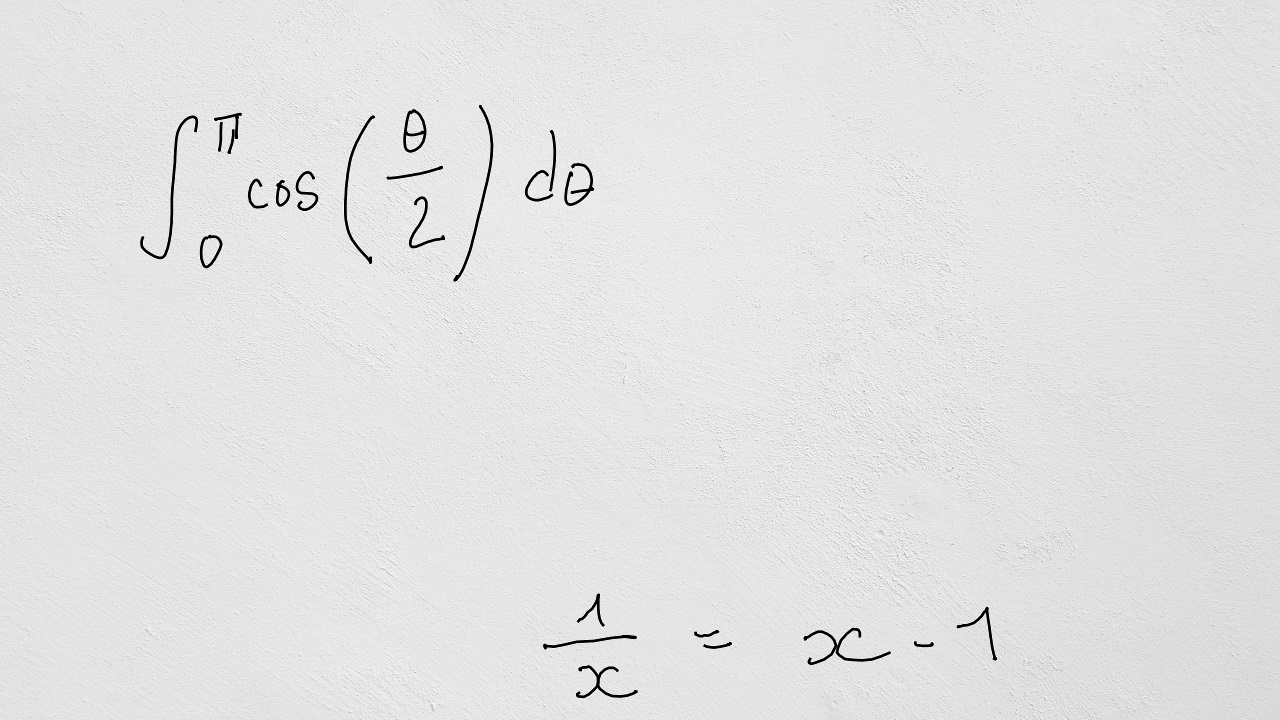 ∫₀^π cos(θ/2) dθ
1/x = x - 1